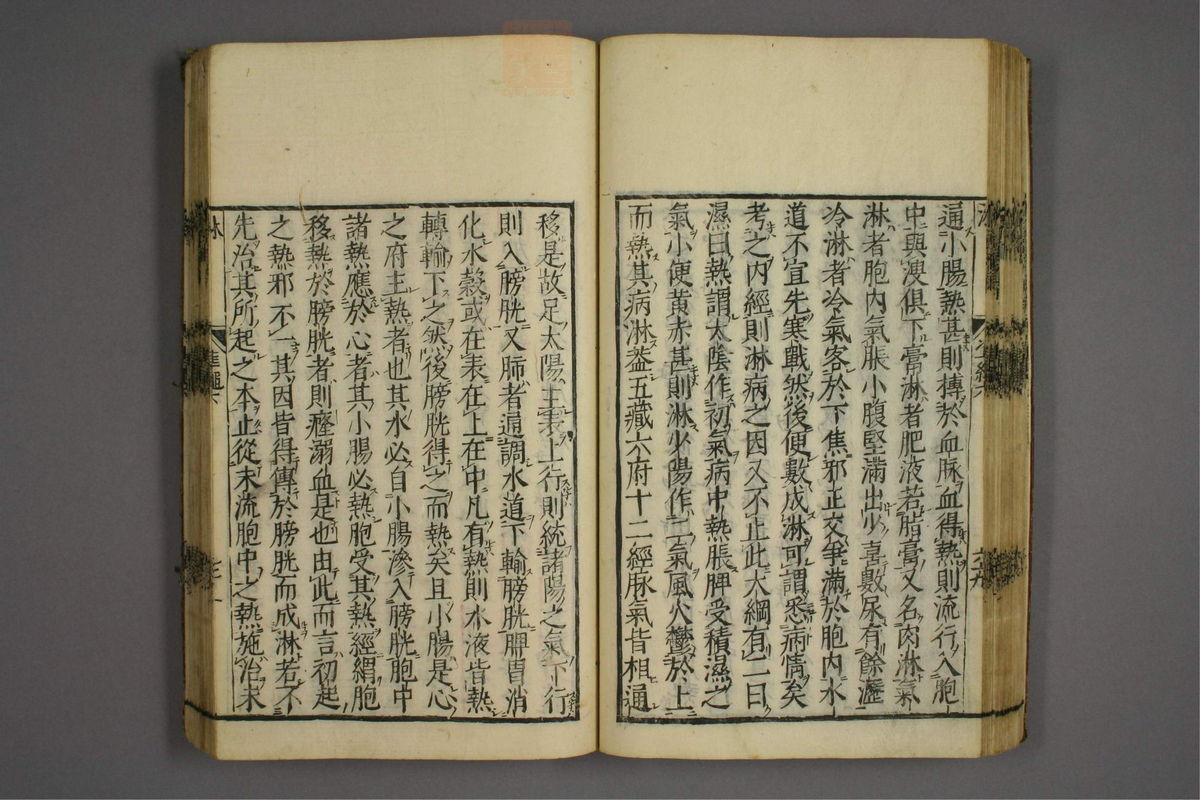 通小腸熱甚則搏於血脉血得熱則流行入胞
中與溲俱下膏淋者肥液若脂膏又名肉淋氣
淋者胞內氣脹小腹堅滿出少喜數尿有餘瀝
冷淋者冷氣客於下焦邪正交爭滿於胞內水
道不宜先寒戰然後便數成淋可謂悉病情矣
考之內經則淋病之因又不止此大綱有二曰
濕曰熱謂太陰作初氣病中熱脹脾受積濕之
氣小便黃赤甚則淋少陽作二氣風火鬱於上
而熱其病淋蓋五藏六府十二經脉氣皆相通
移是故足太陽主裏上行則統諸陽之氣下行
則入膀胱又肺者通調水道下輸膀胱脾胃消
化水穀或在表在上在中凡有熱則水液皆熱
轉輸下之然後膀胱得之而熱矣且小腸是心
之府主熱者也其水必自小腸滲入膀胱胞中
諸熱應於心者其小腸必熱胞受其熱經謂胞
移熱於膀胱者則癃溺血是也由此而言初起
之熱邪不一其因皆得傳於膀胱而成淋若不
先治其所起之本止從末流胞中之熱施治未
淋
準繩六